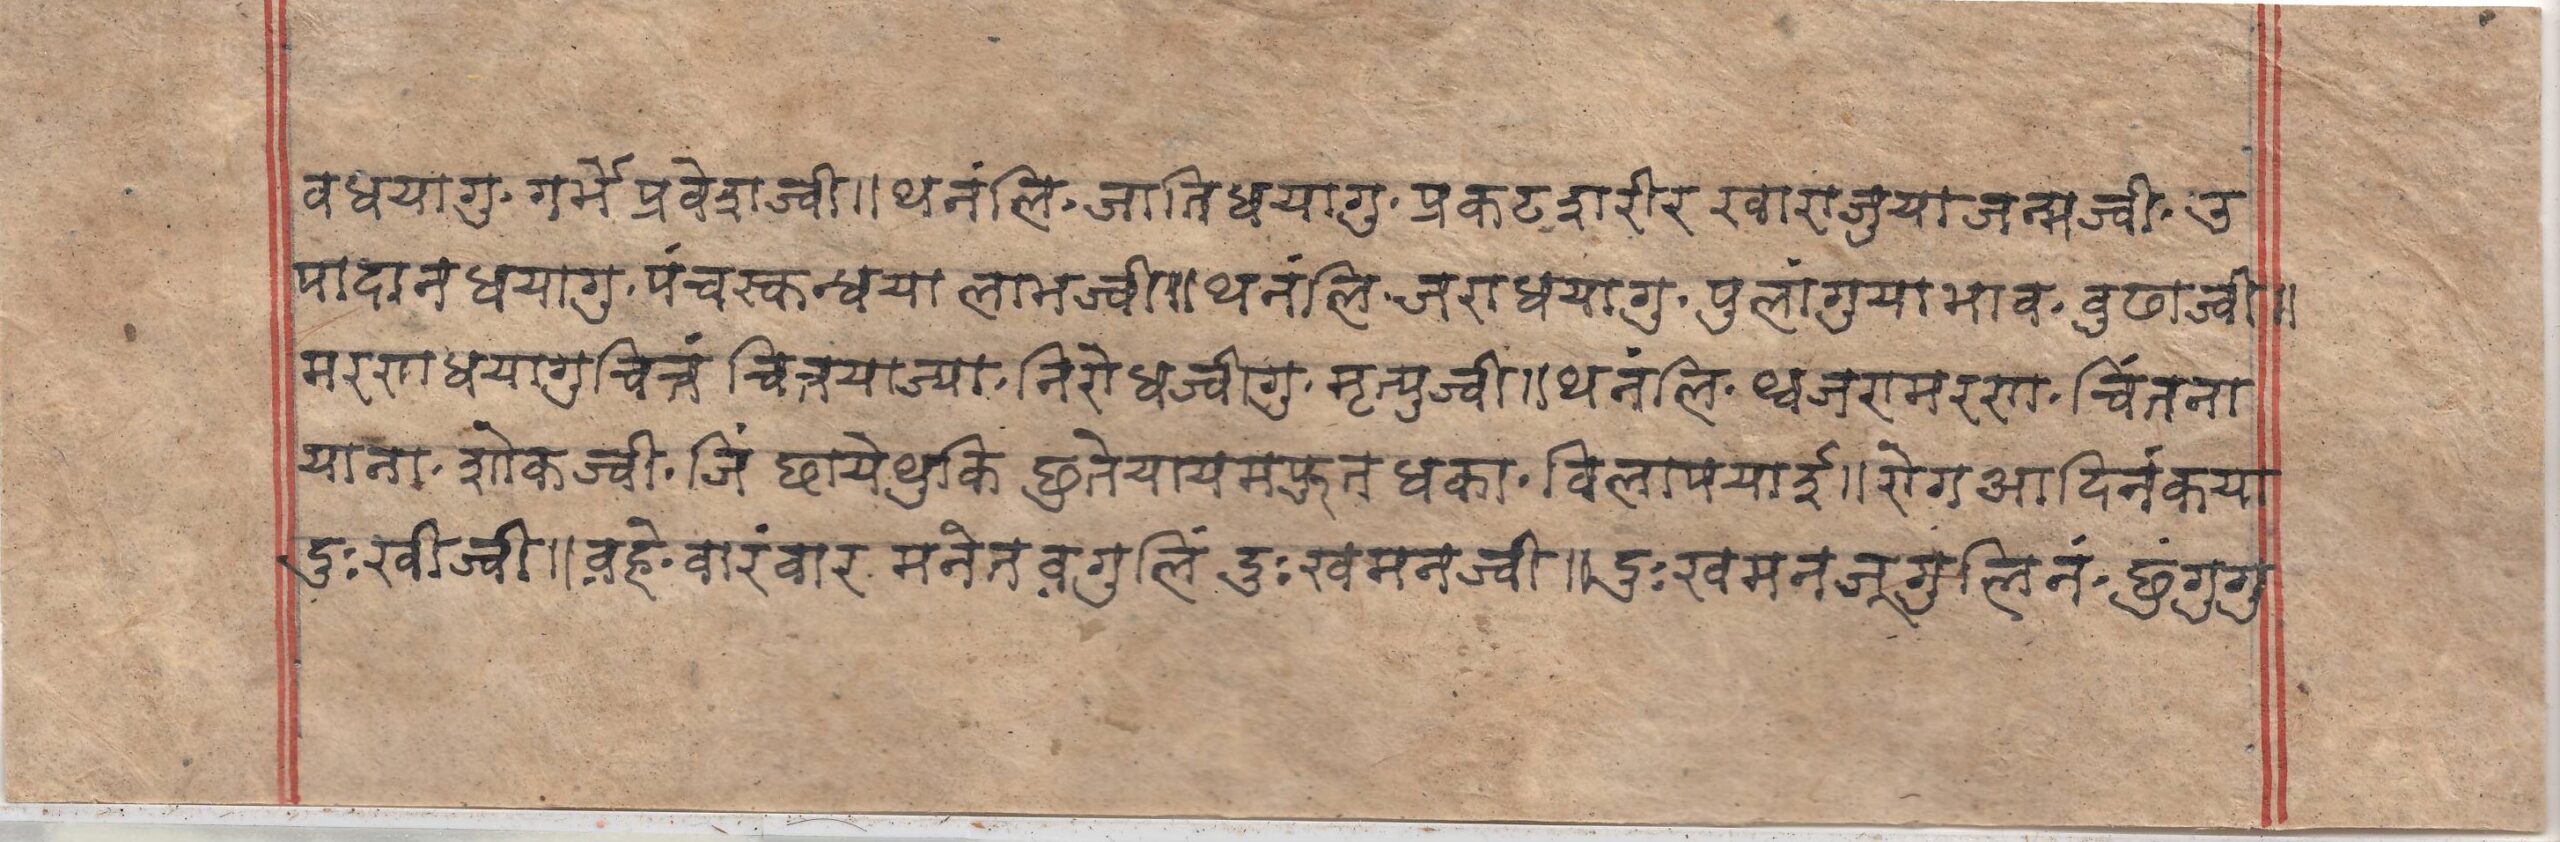 वधयागु· गर्भे प्रवेशज्वी॥थनंलि· जातिधयागु· प्रकटशरीर खाराजुयाजन्मज्वी· उ
पादानधयागु· पंचस्कन्धया लाभज्वी॥थनंलि· जराधयागु· पुलांगुयाभाव· वुढाज्वी॥
मरणधयागुचित्तं चित्तयाज्या· निरोधज्वीगु· मृत्युज्वी॥थनंलि· थ्वजरामरण· चिंतना
याना· शोकज्वी· जिं छायेथुकि छुतेयायमफुत धका· विलापयाई॥रोगआदिनंकया
दुःखीज्वी॥व़हे· वारंवार मनेतव़गुलिं दुःखमनज्वी॥दुःखमनजूगुलिनं· छुंगुगु